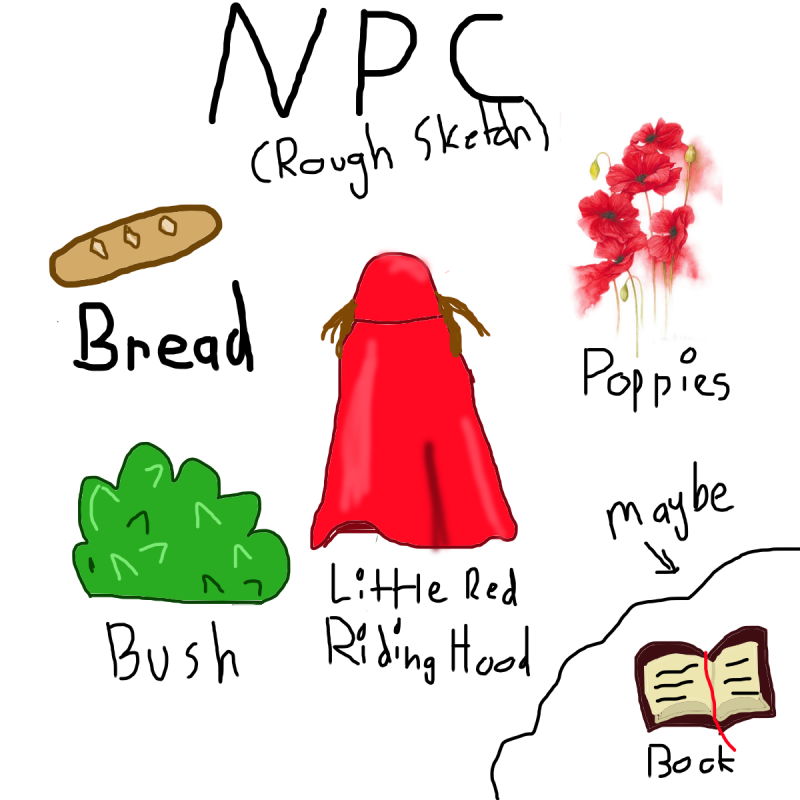 NPC
(Rough Sketch)
Bread
Poppies
maybe
Little Red
Riding Hood
Bush
Book